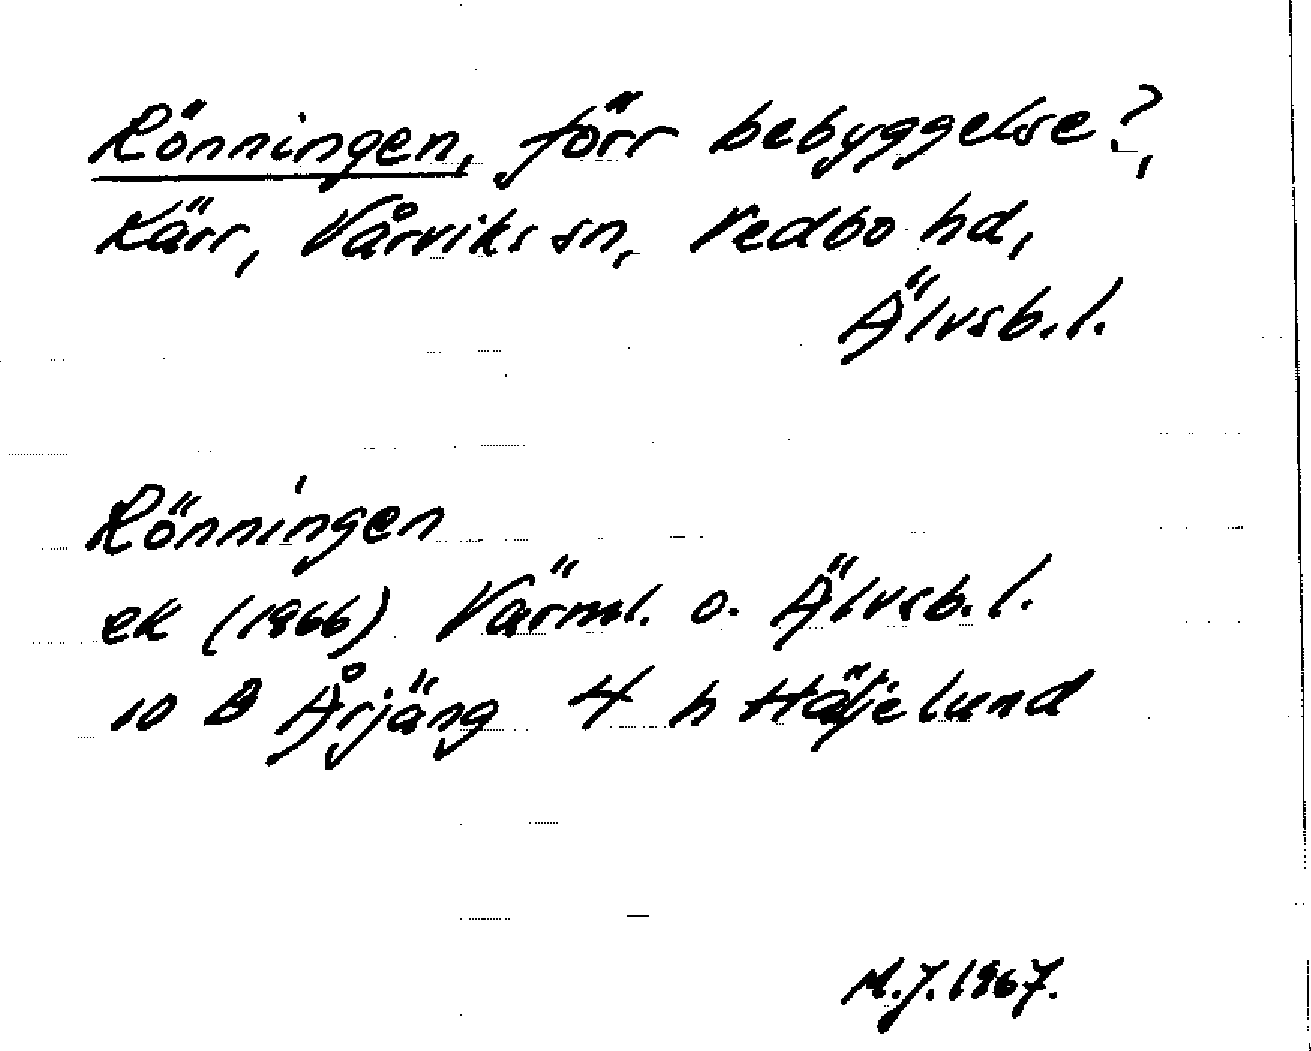 Rönningen, förr bebyggelse?,
Kärr, Vårviks sn, Vedbo hd,
Älvsb.l.
Rönningen
ek (1966) Värml. o. Älvsb.l.
10 B Årjäng 4 h Häljelund
M.J.1967.